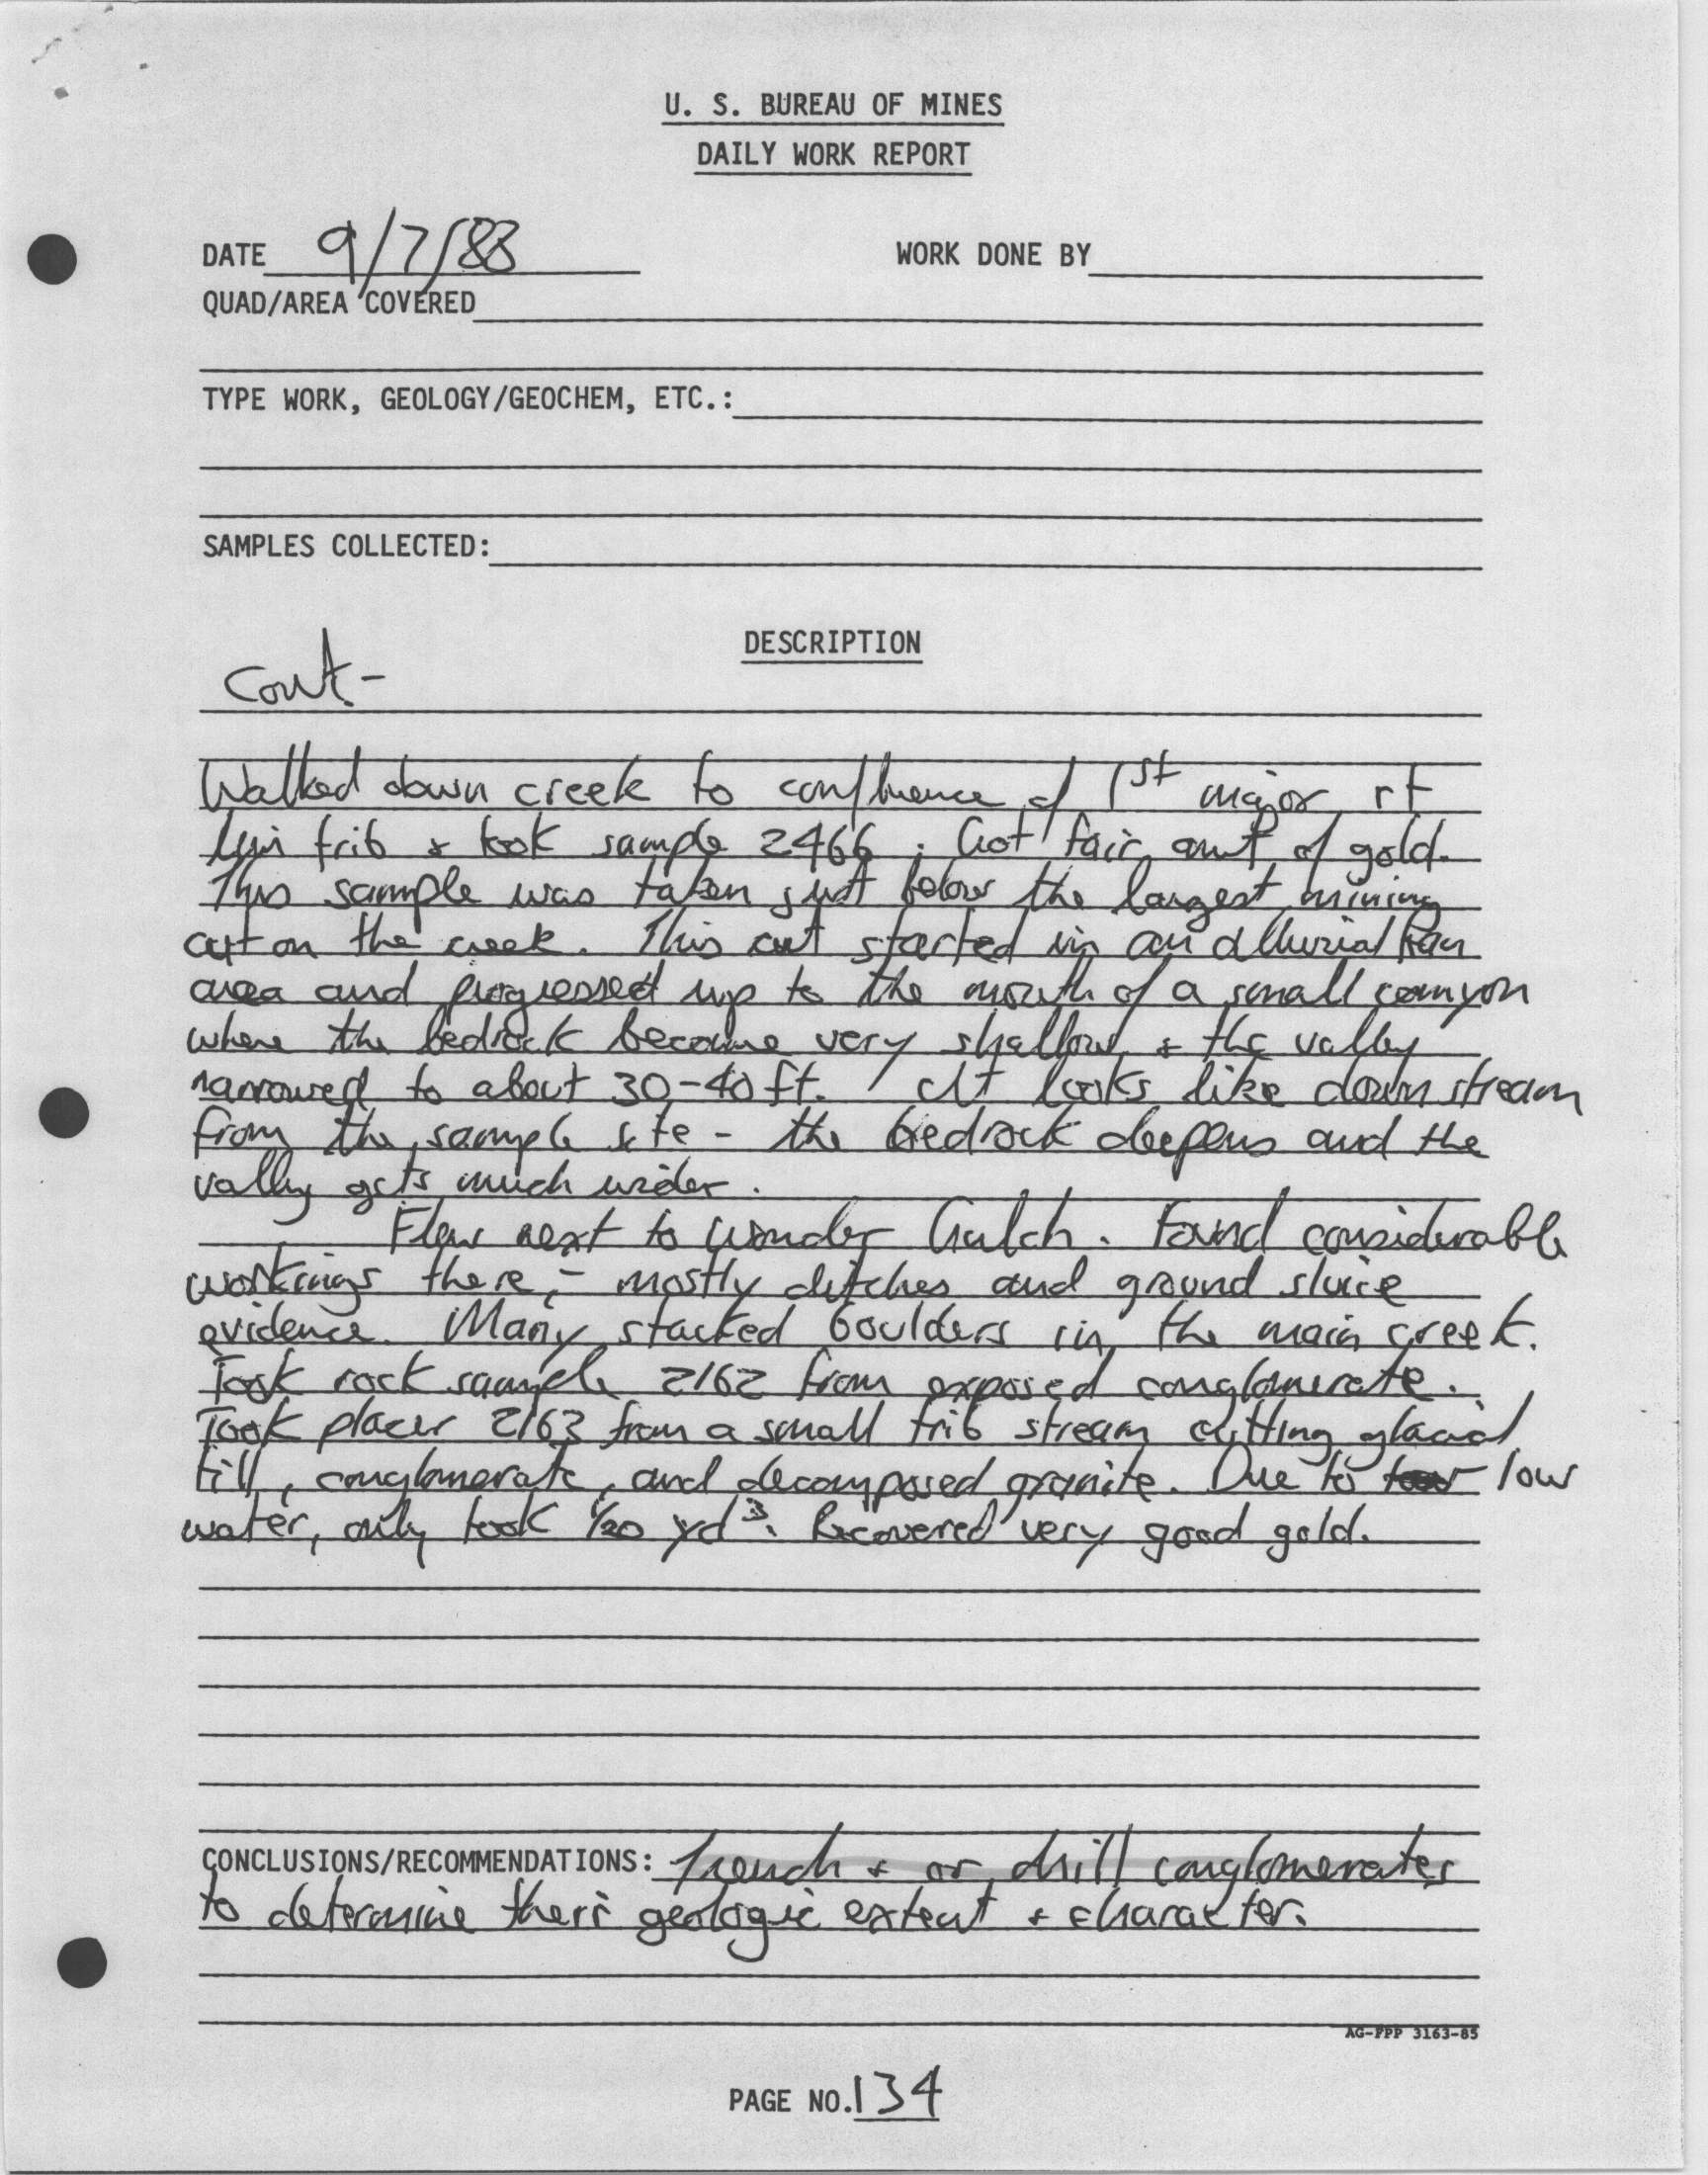 U. S. BUREAU OF MINES
DAILY WORK REPORT
DATE 9/7/88 WORK DONE BY
QUAD/AREA COVERED
TYPE WORK, GEOLOGY/GEOCHEM, ETC.:
SAMPLES COLLECTED:
DESCRIPTION
Cont-
Walked down creek to confluence of 1st major rt
lim trib & took sample 2466. Got fair amt of gold.
This sample was taken just below the largest mining
cut on the creek. This cut started in an alluvial fan
area and progressed up to the mouth of a small canyon
where the bedrock became very shallow & the valley
narrowed to about 30-40 ft. It looks like down stream
from the sample site - the bedrock deepens and the
valley gets much wider.
Flew next to Wonder Gulch. Found considerable
workings there, - mostly ditches and ground sluice
evidence. Many stacked boulders in the main creek.
Took rock sample 2162 from exposed conglomerate.
Took placer 2163 from a small trib stream cutting glacial
till, conglomerate, and decomposed granite. Due to low
water, only took 1/20 yd³. Recovered very good gold.
CONCLUSIONS/RECOMMENDATIONS: Trench & or drill conglomerates
to determine their geologic extent & character.
AG-FPP 3163-85
PAGE NO. 134